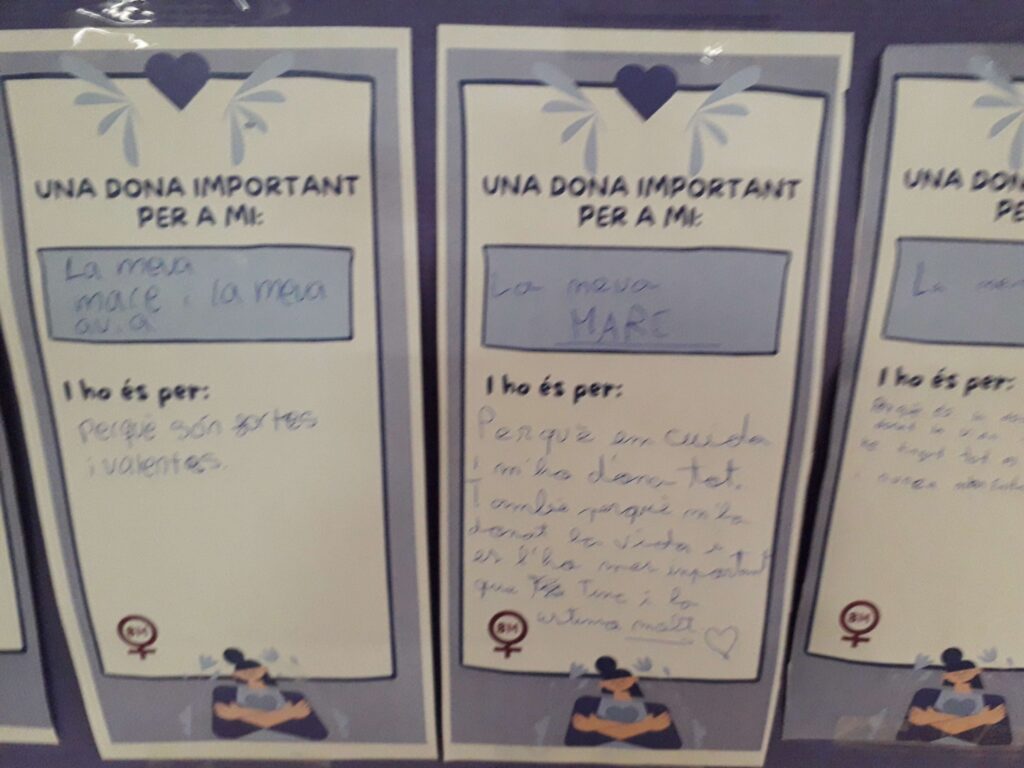 UNA DONA IMPORTANT
PER A MI:
La meva
mare i la meva
avia
I ho és per:
Perquè són fortes
i valentes.
8M
UNA DONA IMPORTANT
PER A MI:
La meva
MARE
I ho és per:
Perquè em cuida
i m'ho dona tot.
També perquè m'ha
donat la vida i
es l'ho mes important
que tinc i la
estimo molt
8M
UNA DON
PE
La me
I ho és per:
Perquè és la
donat la vida
tot
i
8M